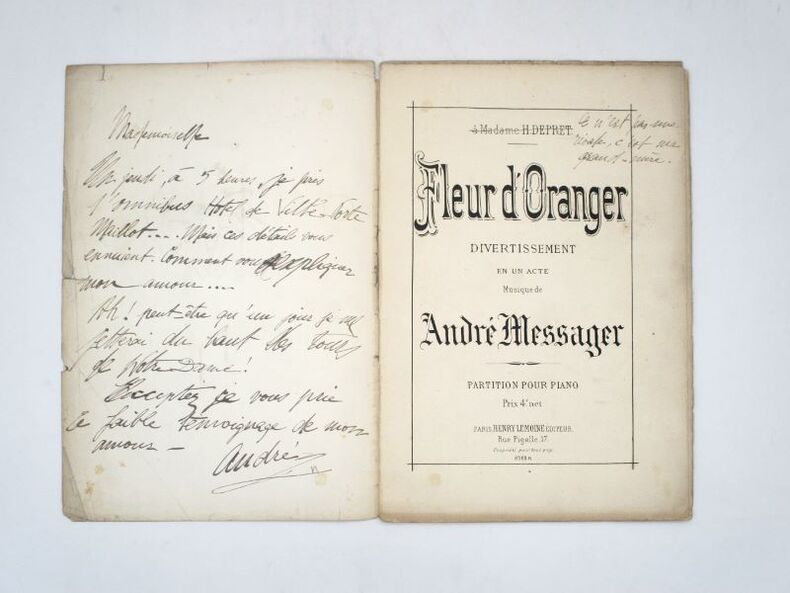 Mademoiselle
Un jeudi, à 5 heures, je pris
l'omnibus Hotel de Ville-Porte
Maillot.... Mais ces détails vous
ennuient. Comment vous expliquer
mon amour....
Ah! peut-être qu'un jour je me
jetterai du haut des tours
de Notre-Dame!
Acceptez je vous prie
le faible témoignage de mon
amour —
André
à Madame H. DEPRET
Ce n'est pas une
c'est ma
grand-mère.
Fleur d'Oranger
DIVERTISSEMENT
EN UN ACTE
Musique de
André Messager
PARTITION POUR PIANO
Prix 4f net
PARIS, HENRY LEMOINE EDITEUR,
Rue Pigalle, 17.
Propriété pour tous pays